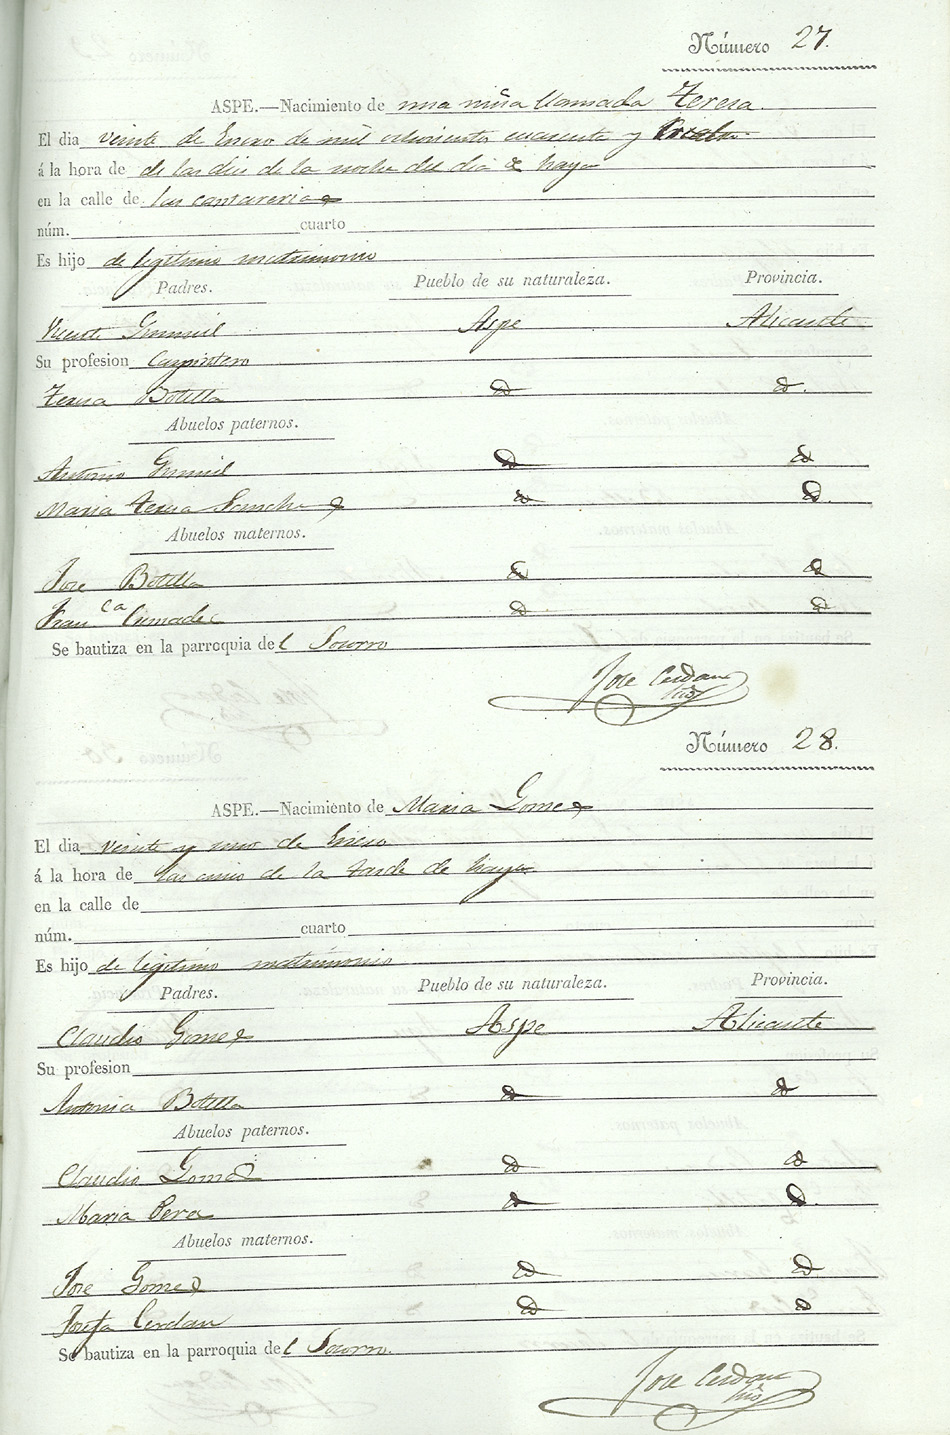 Número 27.
ASPE.—Nacimiento de una niña llamada Teresa.
El dia veinte de Enero de mil ochocientos cuarenta y
á la hora de de las diez de la noche del dia de
en la calle de las cantarerias
núm. cuarto
Es hijo de legitimo matrimonio
Padres. Pueblo de su naturaleza. Provincia.
Vicente Aspe Alicante
Su profesion Carpintero
Teresa Botella d d.
Abuelos paternos.
Antonio d d
Maria Teresa Sanchez d d.
Abuelos maternos.
Jose Botella d d
Fran.ca d d
Se bautiza en la parroquia del Socorro
Jose Cerdan
Número 28.
ASPE.—Nacimiento de Maria Gomez
El dia veinte y uno de Enero
á la hora de las cinco de la tarde de
en la calle de
núm. cuarto
Es hijo de legitimo matrimonio
Padres. Pueblo de su naturaleza. Provincia.
Claudio Gomez Aspe Alicante
Su profesion
Antonia Botella d d
Abuelos paternos.
Claudio Gomez d d
Maria d d.
Abuelos maternos.
Jose Gomez d d
Josefa Cerdan d d
Se bautiza en la parroquia del Socorro.
Jose Cerdan